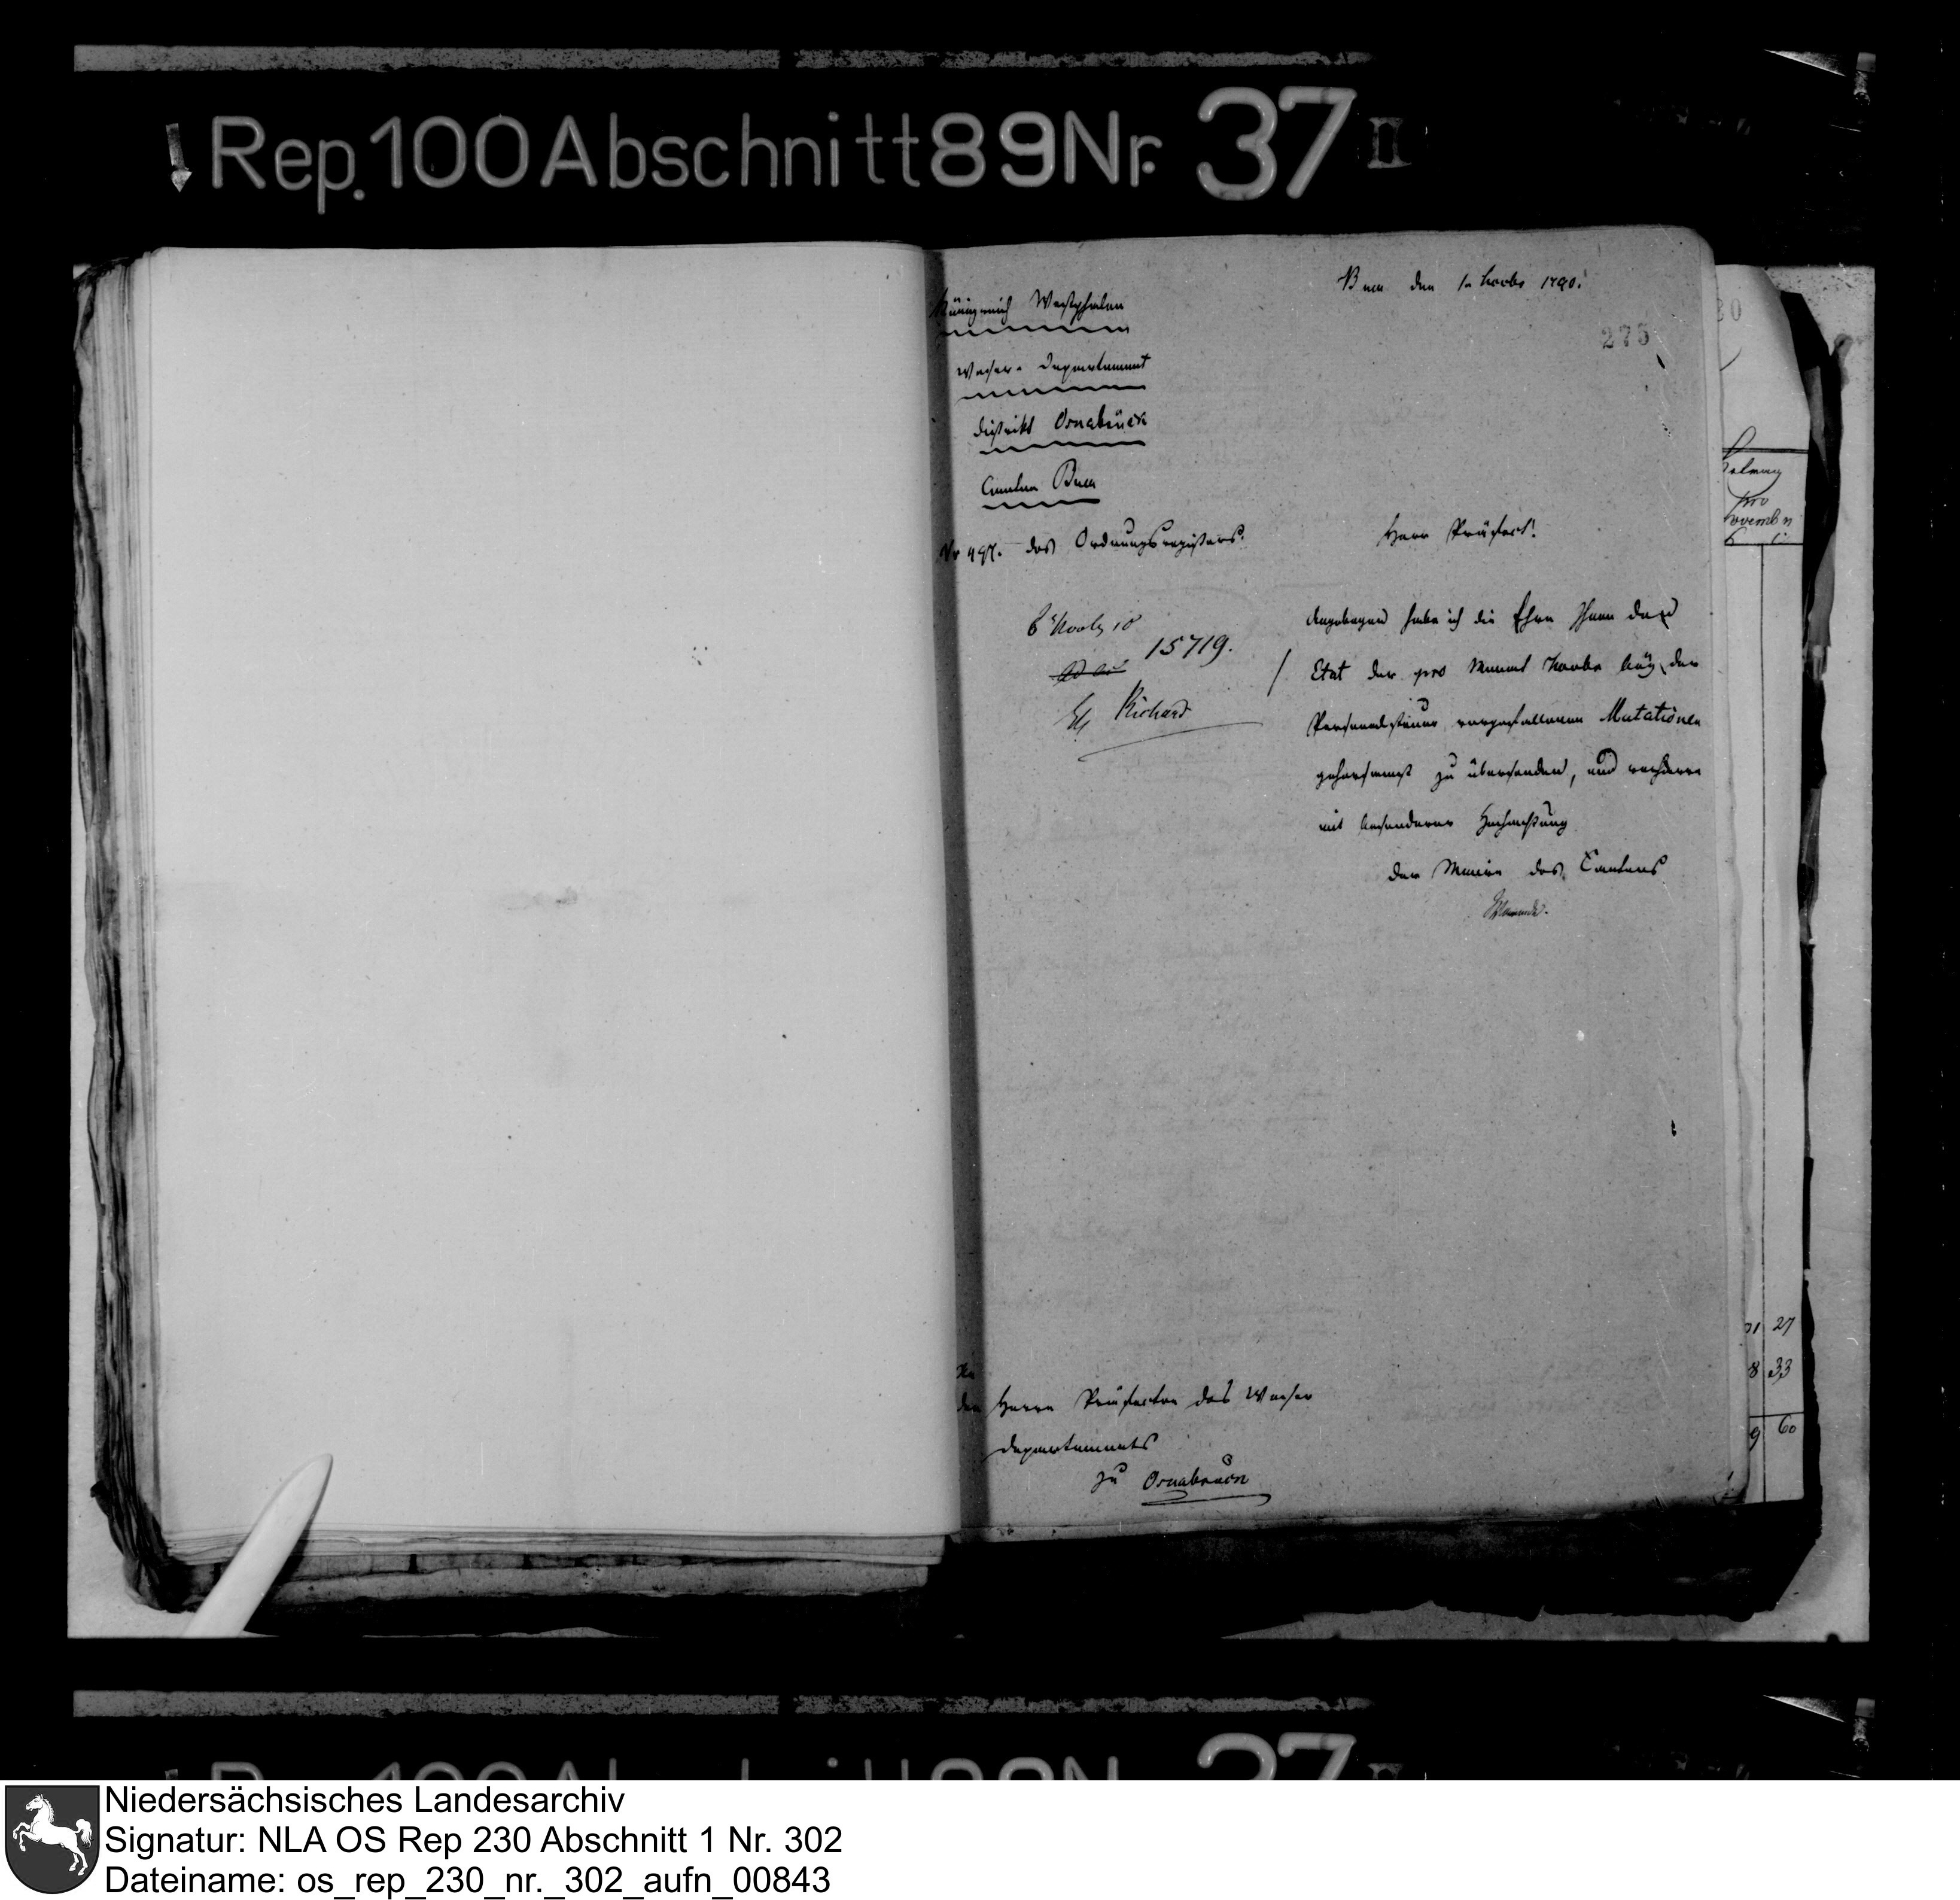 Rep. 100 Abschnitt 89 Nr. 37 II
Buer den 1n Novbr
275
Königreich Westphalen
Weser-Departement
District Osnabrück
Canton Buer
Nr 497. des Ordnungsregisters.
Herr Präfect!
15719.
Richard
Angebogen habe ich die Ehre Ihnen den
Etat der pro Monat Novbr bey der
Personalsteuer vorgefallenen Mutationen
gehorsamst zu übersenden, und verharre
mit besonderer Hochachtung
der Maire des Cantons
An
den Herrn Präfecten des Weser
Departements
zu Osnabrück
pro
Novembr
27
8 33
9 60
Rep. 100 Abschnitt 89 Nr. 37 II
Niedersächsisches Landesarchiv
Signatur: NLA OS Rep 230 Abschnitt 1 Nr. 302
Dateiname: os_rep_230_nr._302_aufn_00843